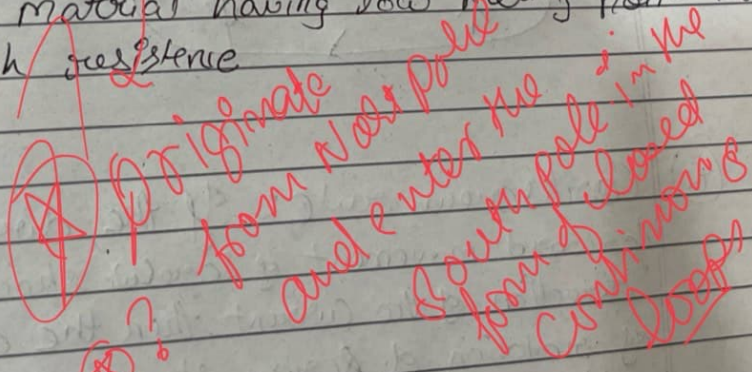 Material having low
h resistence
Originate
from North pole
and enter the
South pole in the
form of closed
continuous
loops
?